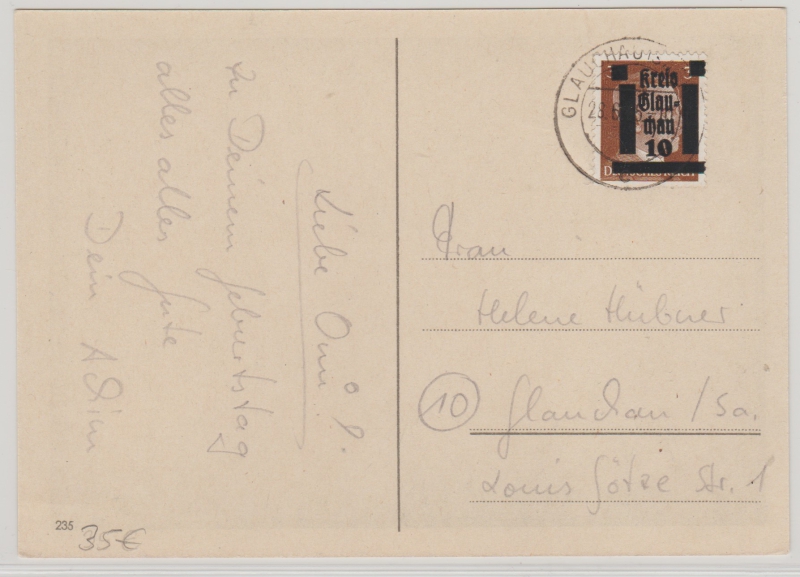 Liebe Omi!
zu Deinem Geburtstag
alles alles Gute
Dein Achim
235
35€
GLAUCHAU
28.6.
3 3
Kreis
Glau-
chau
10
DEUTSCHES REICH
Frau
Helene Hübner
10 Glauchau / Sa.
Louis Götze Str. 1